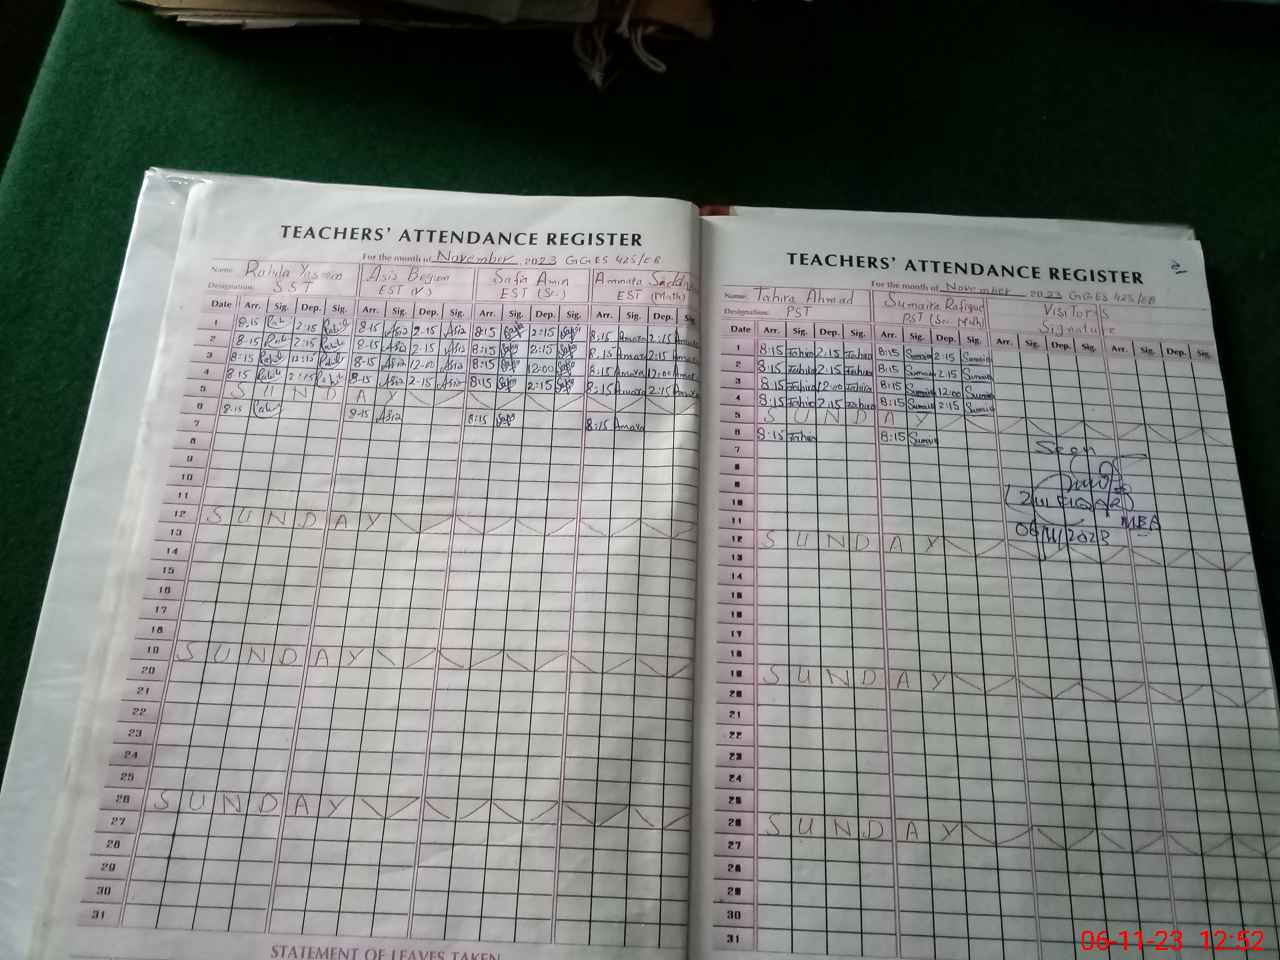 TEACHERS' ATTENDANCE REGISTER
For the month of November 2023 GGES 425/EB
Name: Asia Begum Safia Amin
Designation: SST EST (V) EST (Sc.) EST (Math)
Date Arr. Sig. Dep. Sig. Arr. Sig. Dep. Sig. Arr. Sig. Dep. Sig. Arr. Sig. Dep. Sig.
1 8:15 2:15 8:15 Asia 2:15 Asia 8:15 2:15 8:15 Amara 2:15
2 8:15 2:15 8:15 Asia 2:15 Asia 8:15 2:15 8:15 Amara 2:15
3 8:15 12:15 8:15 Asia 12:00 Asia 8:15 12:00 8:15 Amara 12:00
4 8:15 2:15 8:15 Asia 2:15 Asia 8:15 2:15 8:15 Amara 2:15
5 SUNDAY
6 8:15 8:15 Asia 8:15 8:15 Amara
7
8
9
10
11
12 SUNDAY
13
14
15
16
17
18
19 SUNDAY
20
21
22
23
24
25
26 SUNDAY
27
28
29
30
31
STATEMENT OF LEAVES TAKEN
TEACHERS' ATTENDANCE REGISTER
For the month of November 2023 GGES 425/EB
Name: Tahira Ahmad Sumaira Rafique Visitor's
Designation: PST PST (Sc. Math) Signature
Date Arr. Sig. Dep. Sig. Arr. Sig. Dep. Sig. Arr. Sig. Dep. Sig. Arr. Sig. Dep. Sig.
1 8:15 Tahira 2:15 Tahira 8:15 Sumaira 2:15 Sumaira
2 8:15 Tahira 2:15 Tahira 8:15 Sumaira 2:15 Sumaira
3 8:15 Tahira 12:00 Tahira 8:15 Sumaira 12:00 Sumaira
4 8:15 Tahira 2:15 Tahira 8:15 Sumaira 2:15 Sumaira
5 SUNDAY
6 8:15 Tahira 8:15 Sumaira
7 Seen
8
9
10 (ZULFIQAR)
11 MEA
12 SUNDAY 06/11/2023
13
14
15
16
17
18
19 SUNDAY
20
21
22
23
24
25
26 SUNDAY
27
28
29
30
31
06-11-23 12:52